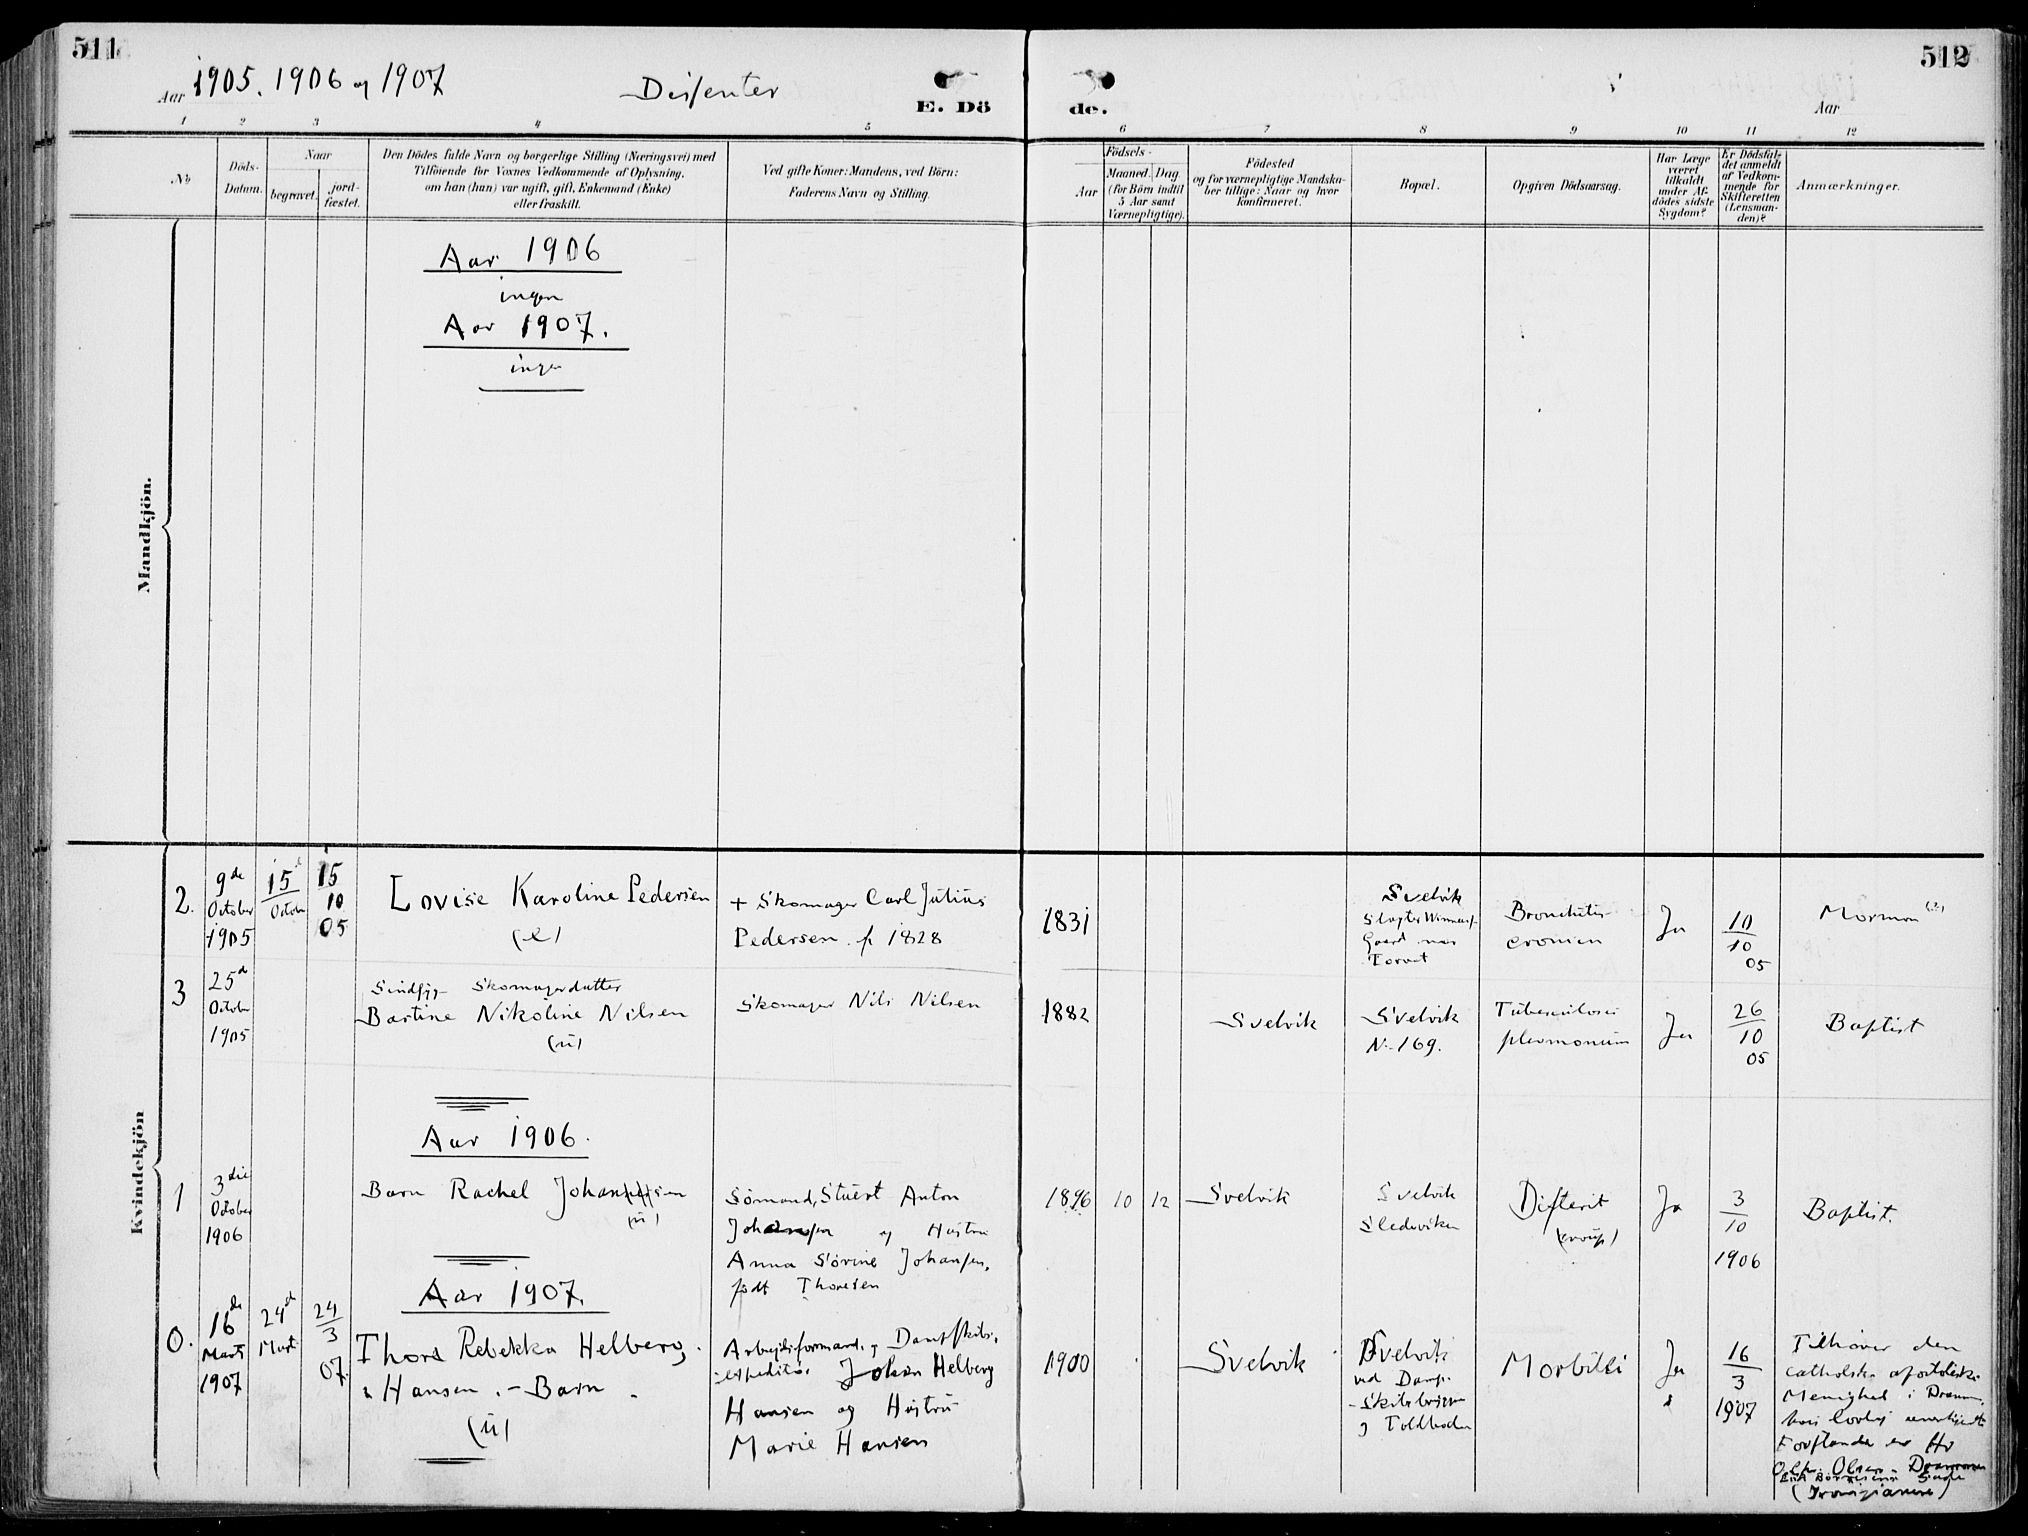 511
512
Aar 1905. 1906 og 1907
Dissenter
E. Dö
de.
Aar
1 2 3 4 5
6 7 8 9 10 11 12
No
Döds-
Datum.
Naar
begravet.
jord-
fæstet.
Den Dödes fulde Navn og borgerlige Stilling (Næringsvei) med
Tilföiende for Voxnes Vedkommende af Oplysning,
om han (hun) var ugift, gift, Enkemand (Enke)
eller fraskilt.
Ved gifte Koner: Mandens, ved Börn:
Faderens Navn og Stilling.
Födsels-
Aar
Maaned. Dag
(for Börn indtil
5 Aar samt
Værnepligtige).
Födested
og for værnepligtige Mandska-
ber tillige: Naar og hvor
konfirmeret.
Bopæl.
Opgiven Dödsaarsag.
Har Læge
været
tilkaldt
under Af-
dödes sidste
Sygdom?
Er Dödsfal-
det anmeldt
af Vedkom-
mende for
Skifteretten
(Lensman-
den)?
Anmærkninger.
Mandkjön.
Aar 1906
ingen
Aar 1907.
ingen
Kvindekjön
2.
9de
October
1905
15d
October
15
10
05
Lovise Karoline Pedersen
(e)
+ Skomager Carl Julius
Pedersen. f 1828
1831
Svelvik
Gaard nær
Torvet
Bronchitis
cronien
Ja
10
10
05
Mormon (?)
3
25d
October
1905
Skomagerdatter
Bastine Nikoline Nilsen
(ü)
Skomager Nils Nilsen
1882
Svelvik
Svelvik
N. 169.
Tuberculosis
plevmonum
Ja
26
10
05
Baptist
Aar 1906.
1
3die
October
1906
Barn Rachel Johansen
(ü)
Sömand, Stuert Anton
Johansen og Hustru
Anna Sörine Johansen,
födt Thoresen
1896 10 12
Svelvik
Svelvik
Sledeviken
Difterit
(croup)
Ja
3
10
1906
Baptist.
Aar 1907.
0.
16de
Marts
1907
24d
Mart
24
3
07.
Thora Rebekka Helberg
Hansen. - Barn
(ü)
Arbeidsformand, og Dampskibs-
expeditör Johan Helberg
Hansen og Hustru
Marie Hansen
1900
Svelvik
Svelvik
ved Damp-
-skibsbryggen
og Toldboden
Morbilli
Ja
16
3
1907
Tilhörer den
catholsk apostoliske
Menighed i Dramm.
Forstander er Hr
Olsen. Drammen